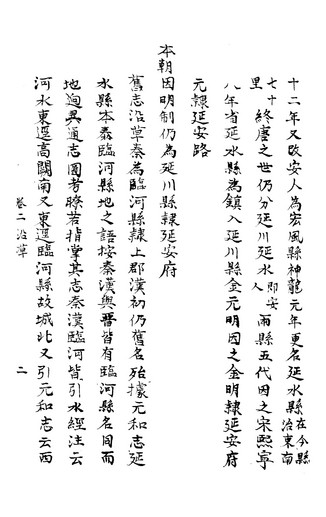 十二年又改安人為宏風縣神龍元年更名延水縣在今縣治東南
七十里終唐之世仍分延川延水即安人兩縣五代因之宋熙寧
八年省延水縣為鎮入延川縣金元明因之金明隸延安府
元隸延安路
本朝因明制仍為延川縣隸延安府
舊志沿革秦為臨河縣隸上郡漢初仍舊名殆據元和志延
水縣本秦臨河縣地之語按秦漢與晉皆有臨河縣名同而
地迥異通志圖考瞭若指掌其志秦漢臨河皆引水經注云
河水東逕高闕南又東逕臨河縣故城北又引元和志云西
卷二沿革
二